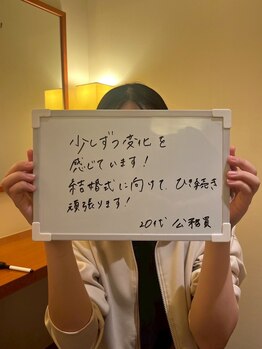 少しずつ変化を
感じています!
結婚式に向けて、ひき続き
頑張ります!
20代 公務員